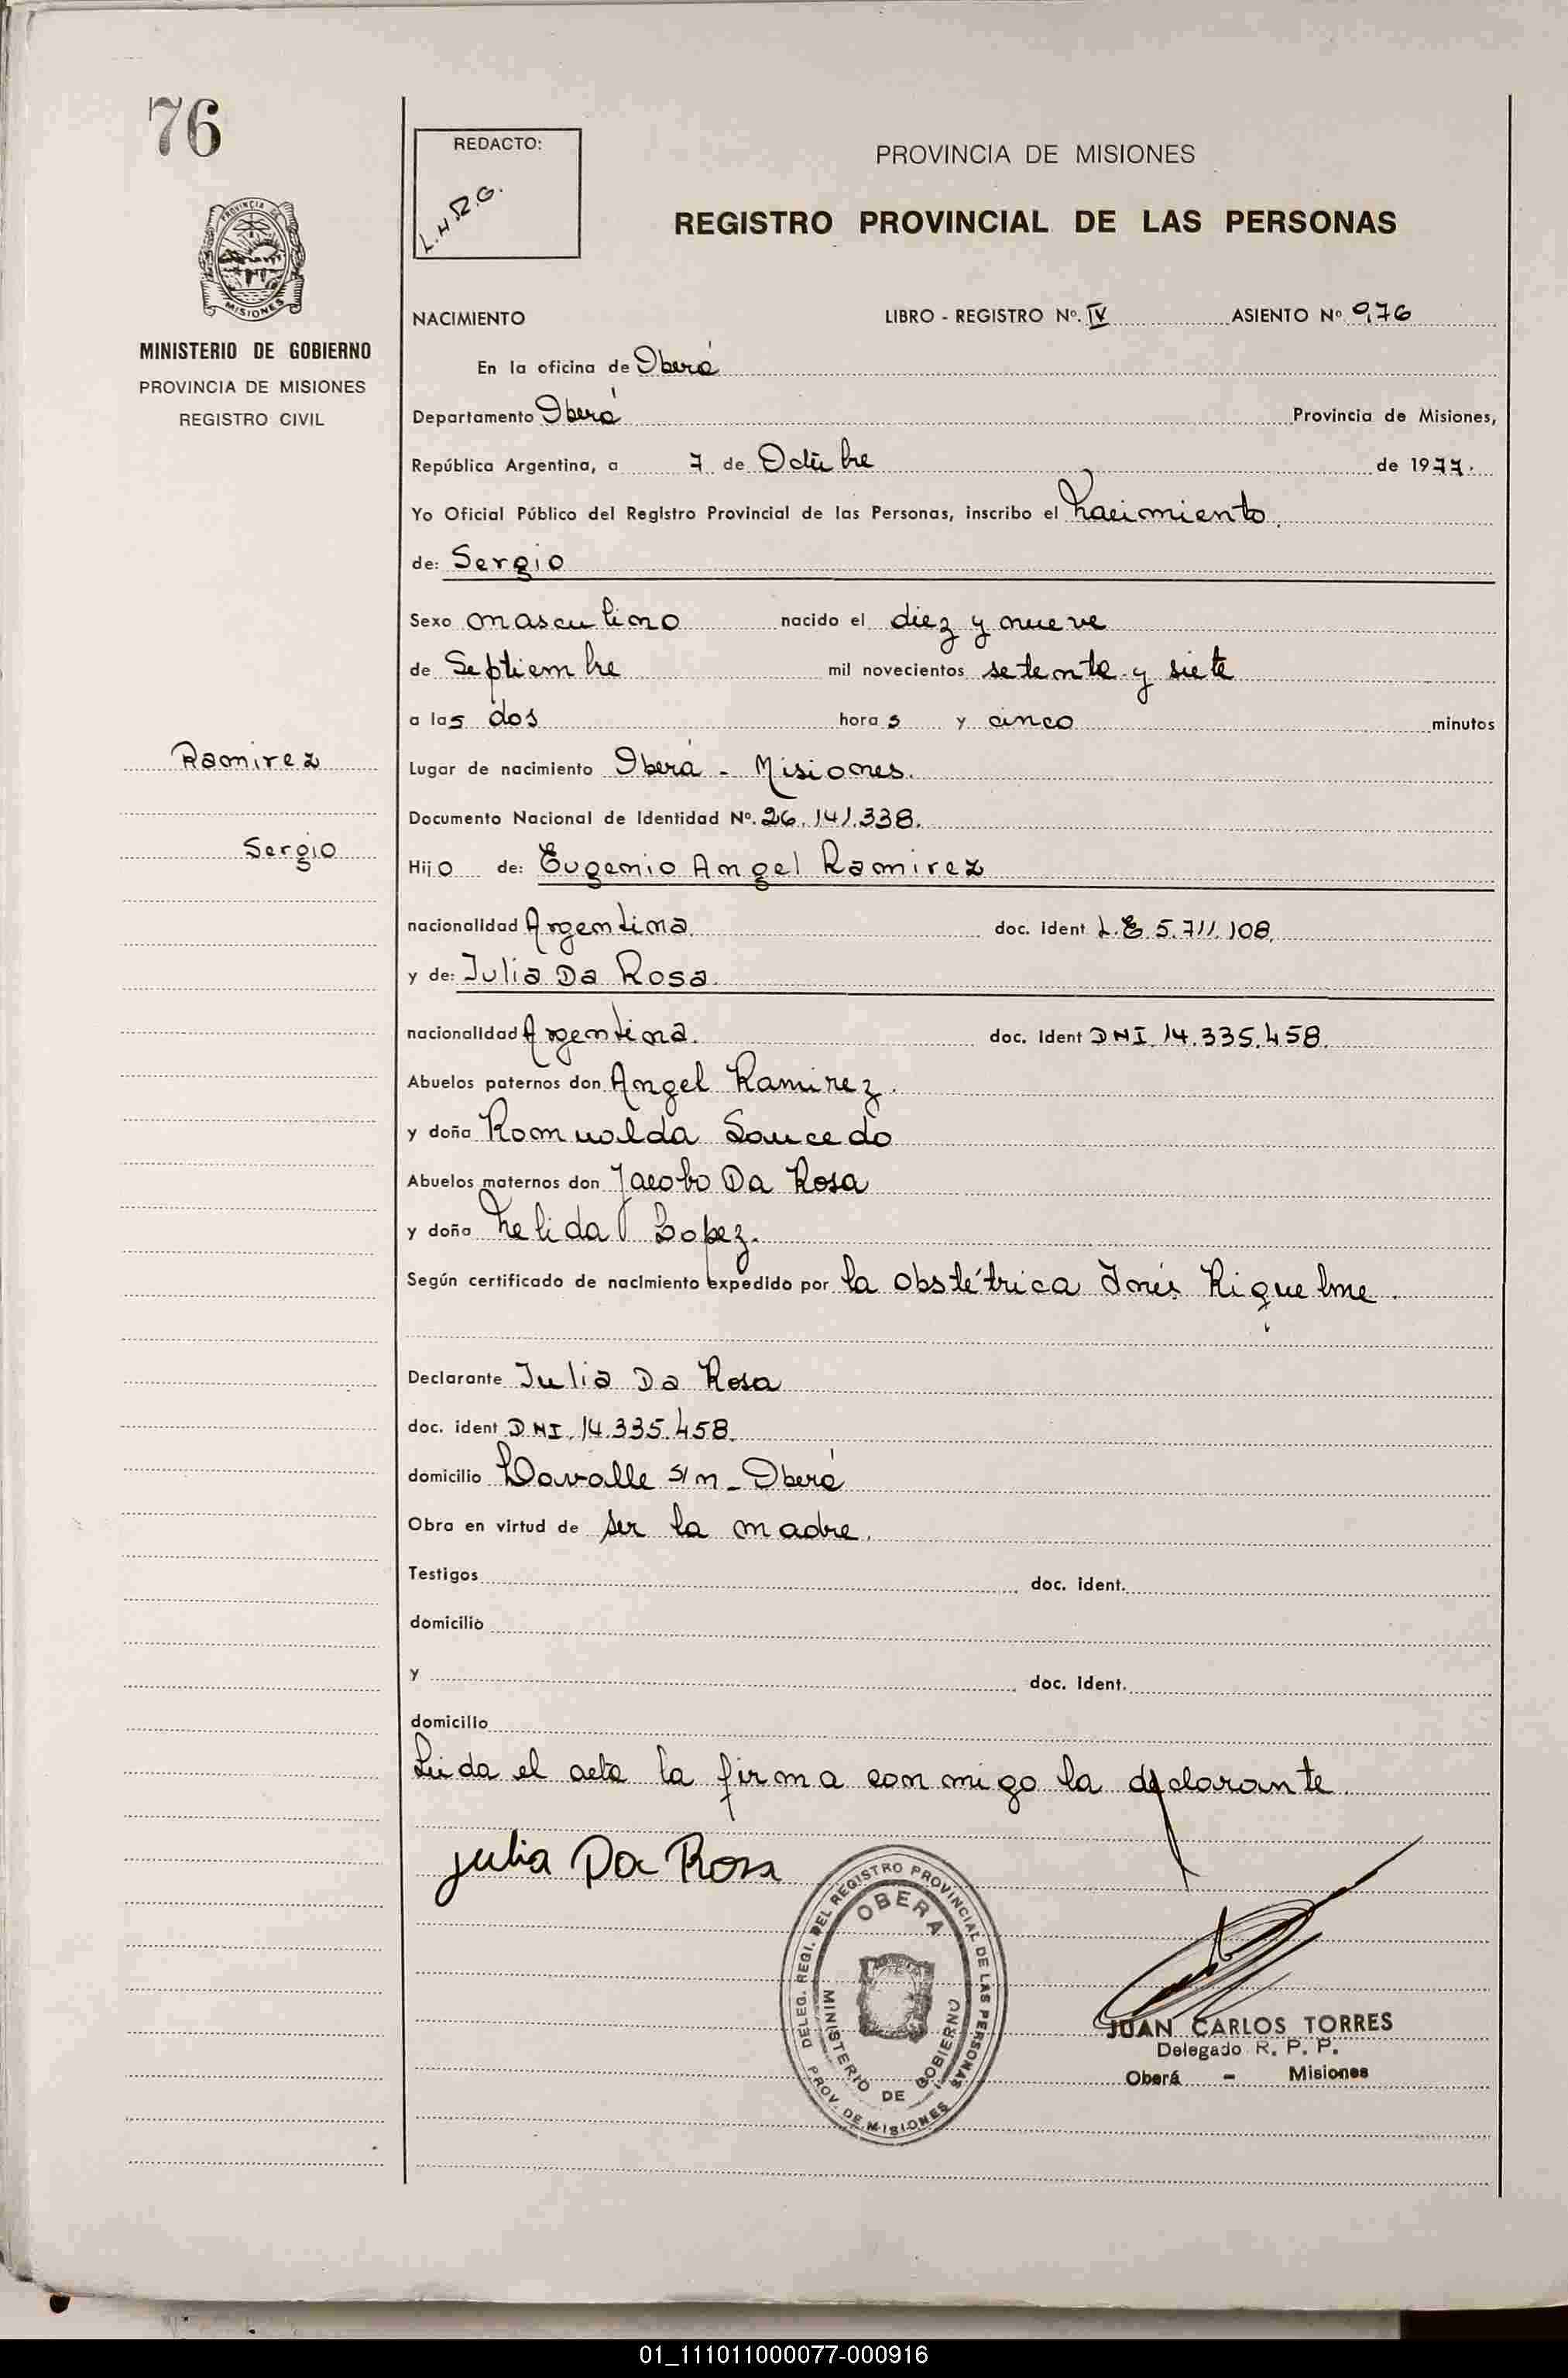 76
REDACTO:
L.H.R.G.
PROVINCIA DE MISIONES
REGISTRO PROVINCIAL DE LAS PERSONAS
PROVINCIA DE
MISIONES
MINISTERIO DE GOBIERNO
PROVINCIA DE MISIONES
REGISTRO CIVIL
NACIMIENTO LIBRO - REGISTRO Nº. IV ASIENTO Nº 976
En la oficina de Oberá
Departamento Oberá Provincia de Misiones,
República Argentina, a 7 de Octubre de 1977.
Yo Oficial Público del Registro Provincial de las Personas, inscribo el nacimiento
de: Sergio
Sexo masculino nacido el diez y nueve
de Septiembre mil novecientos setenta y siete
a las dos horas y cinco minutos
Ramirez
Lugar de nacimiento Oberá - Misiones.
Documento Nacional de Identidad Nº. 26.141.338.
Sergio
Hijo de: Eugenio Angel Ramirez
nacionalidad Argentina. doc. ident L.E 5.711.108.
y de: Julia Da Rosa.
nacionalidad Argentina. doc. ident DNI. 14.335.458.
Abuelos paternos don Angel Ramirez.
y doña Romualda Saucedo
Abuelos maternos don Jacobo Da Rosa
y doña Nelida Lopez.
Según certificado de nacimiento expedido por la obstétrica Inés Riquelme.
Declarante Julia Da Rosa
doc. ident DNI. 14.335.458.
domicilio Lavalle s/n - Oberá
Obra en virtud de ser la madre.
Testigos doc. ident.
domicilio
y doc. ident.
domicilio
Leida el acta la firma conmigo la declarante.
Julia Da Rosa
DELEG. REGI. DEL REGISTRO PROVINCIAL DE LAS PERSONAS
OBERA
MINISTERIO DE GOBIERNO
PROV. DE MISIONES
JUAN CARLOS TORRES
Delegado R. P. P.
Oberá - Misiones
01_111011000077-000916